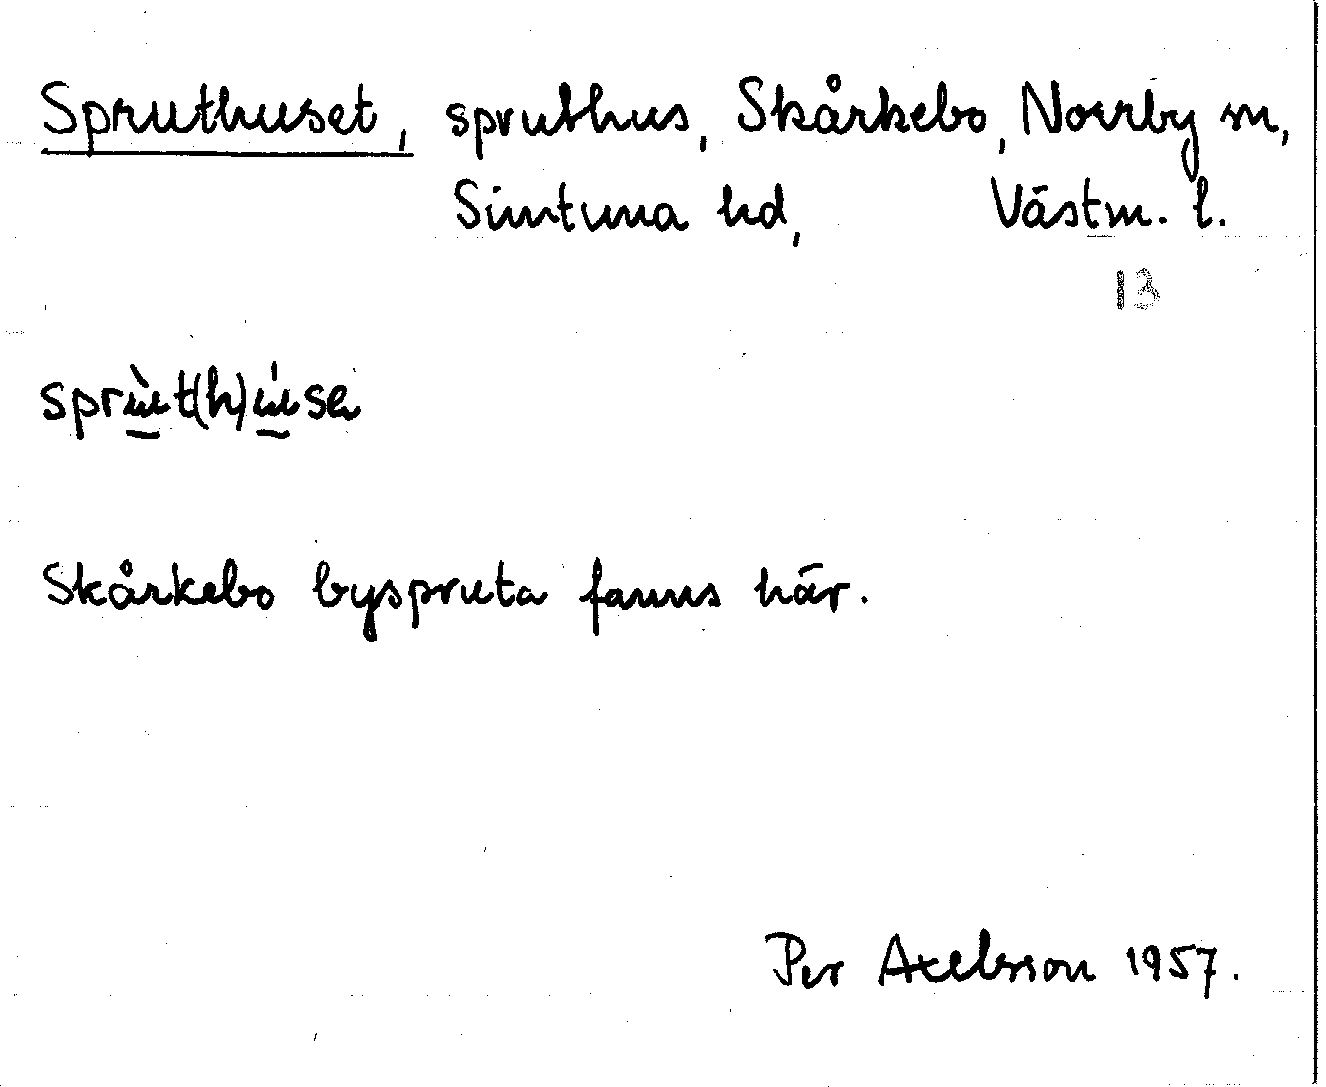 Spruthuset, spruthus, Skårkebo, Norrby sn,
Simtuna hd, Västm. l.
13
sprù̱t(h)ú̱se
Skårkebo byspruta fanns här.
Per Axelsson 1957.